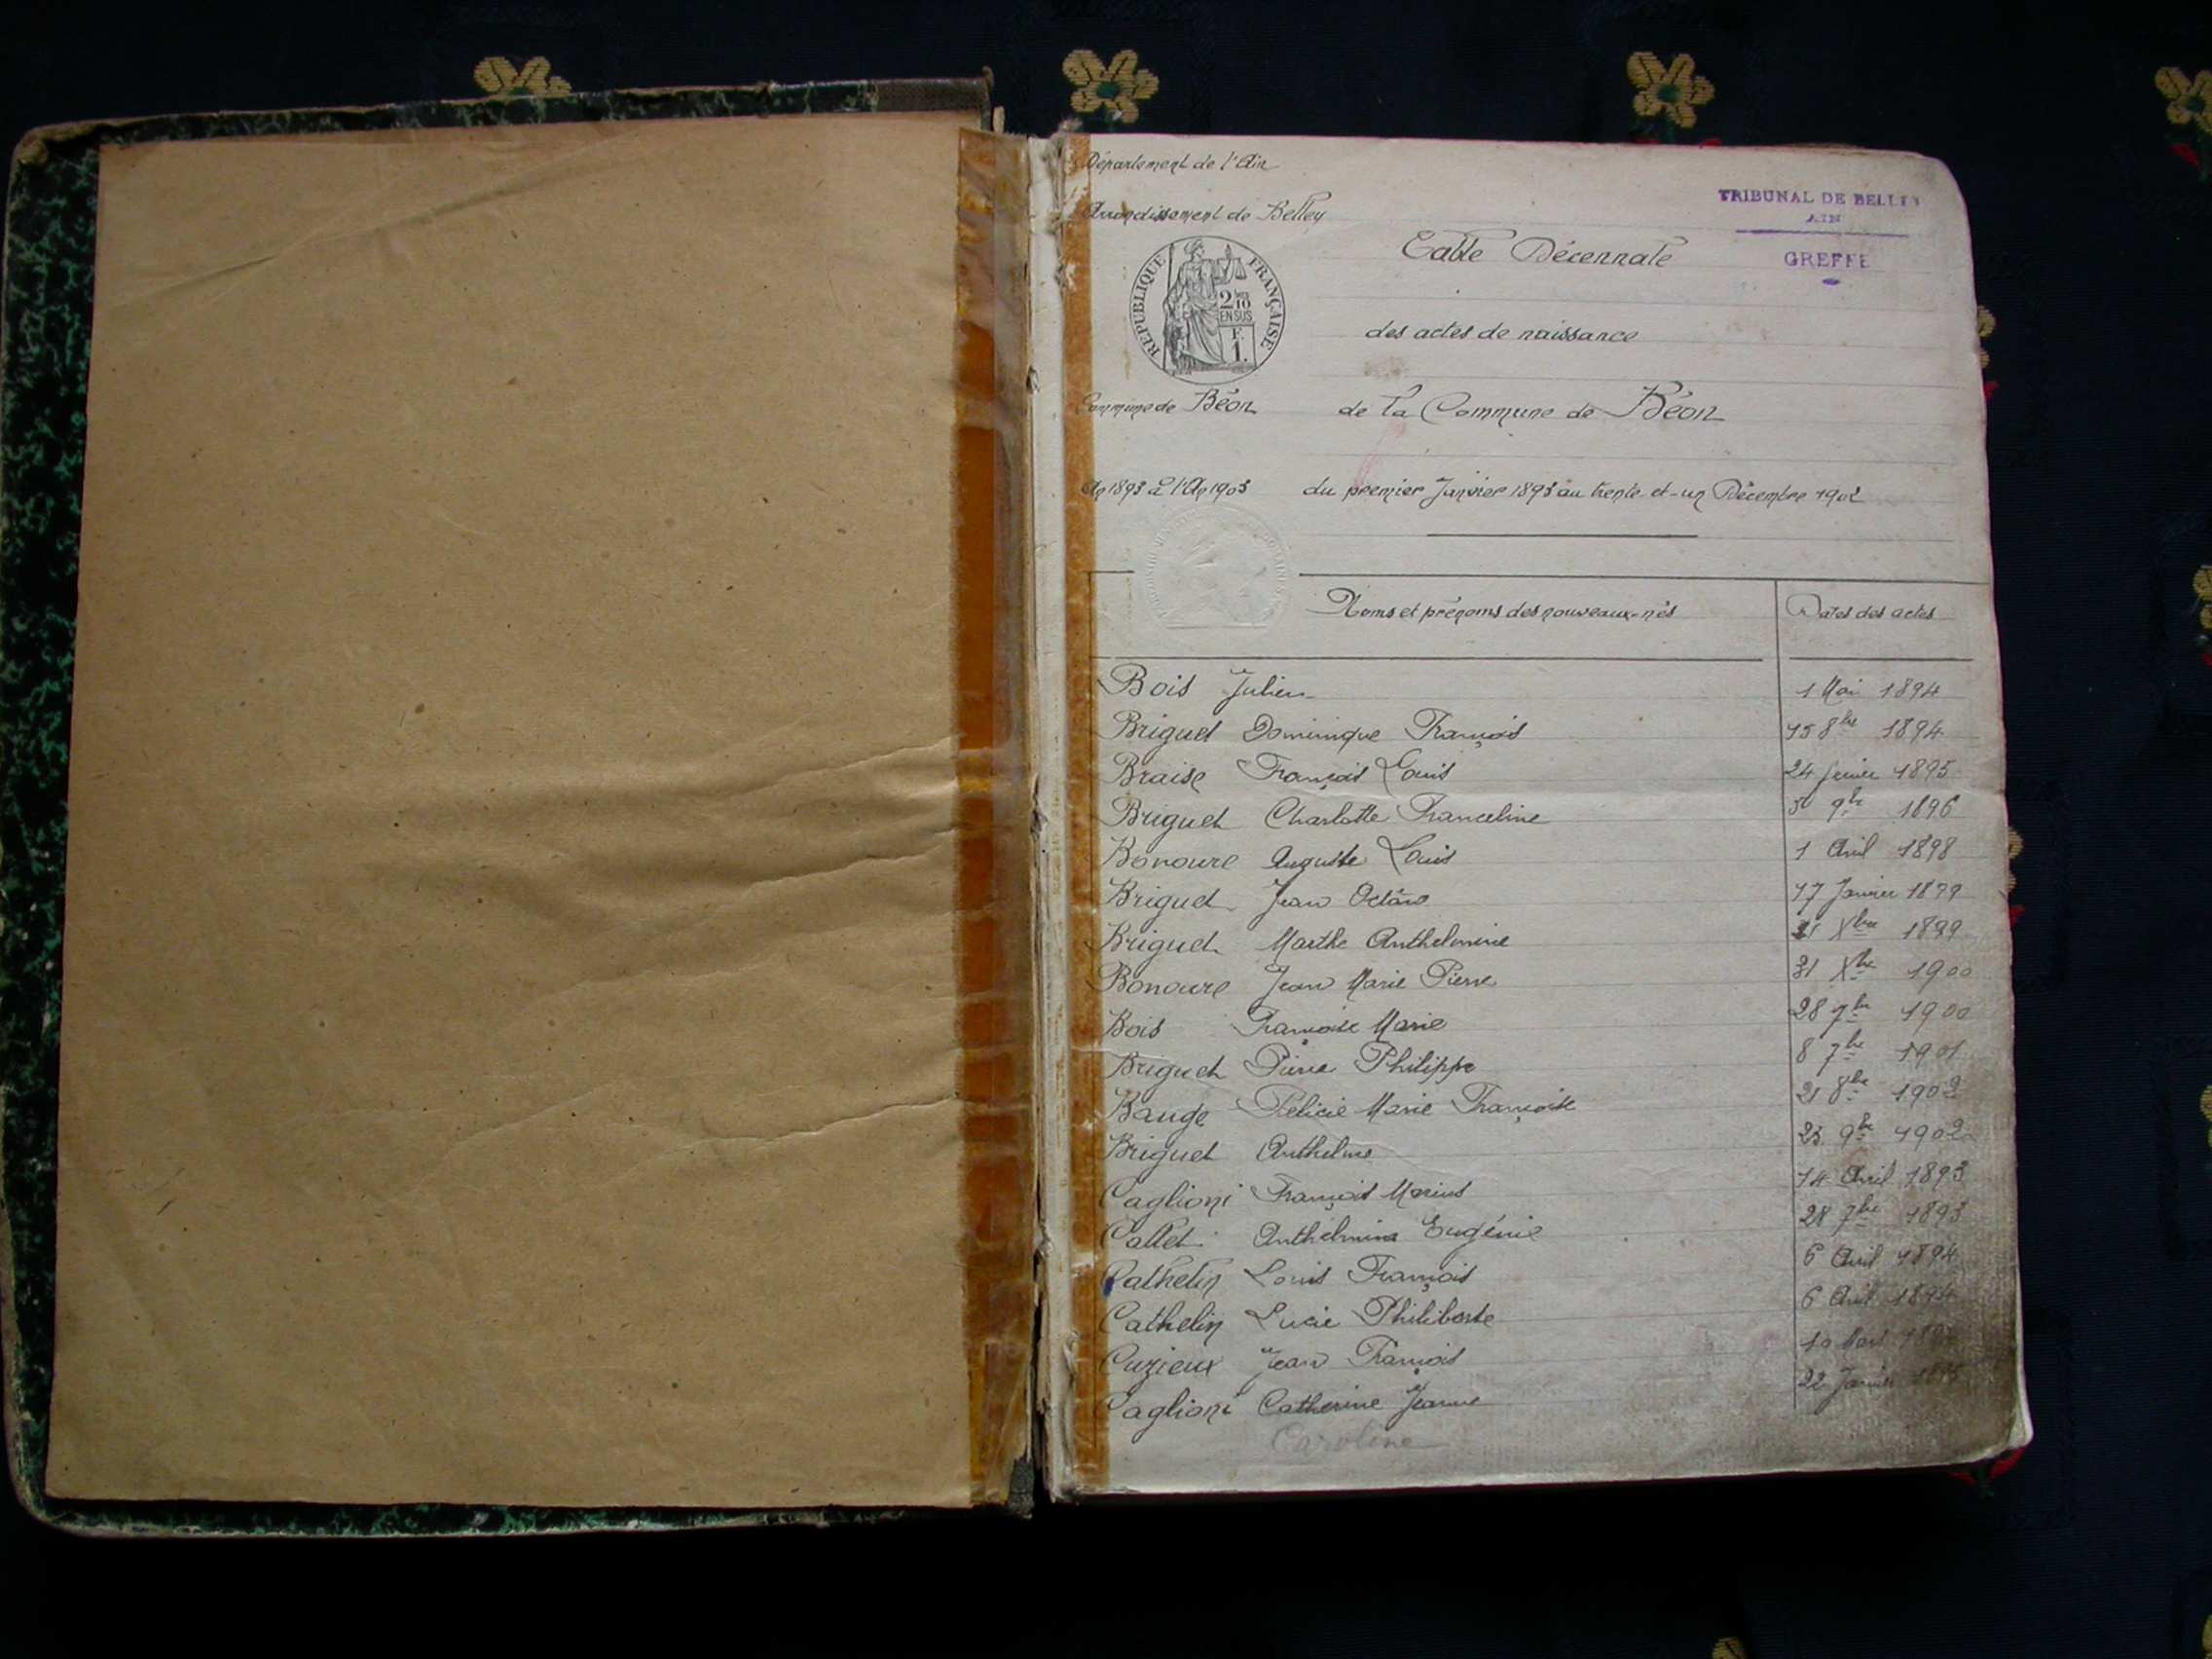 Département de l'Ain
Arrondissement de Belley
TRIBUNAL DE BELLEY
AIN
GREFFE
REPUBLIQUE FRANÇAISE
2/10
EN SUS
F.
1.
Table Décennale
des actes de naissance
Commune de Béon
de la Commune de Béon
An 1893 à l'An 1903
du premier Janvier 1893 au trente-et-un Décembre 1902
Noms et prénoms des nouveaux-nés Dates des actes
Bois Julien 1 Mai 1894
Briguet Dominique François 15 8bre 1894
Braise François Louis 24 février 1895
Briguet Charlotte Franceline 9bre 1896
Bonoure Auguste Louis 1 Avril 1898
Briguet Jean Octave 17 Janvier 1899
Briguet Marthe Anthelmine Xbre 1899
Bonoure Jean Marie Pierre 31 Xbre 1900
Bois Françoise Marie 28 7bre 1900
Briguet Pierre Philippe 8 7bre 1901
Bauge Félicie Marie Françoise 21 8bre 1902
Briguet Anthelme 23 9bre 1902
Caglioni François Marius 14 Avril 1893
Callet Anthelmina Eugénie 28 7bre 1893
Cathelin Louis François 6 Avril 1894
Cathelin Lucie Philiberte 6 Avril 1894
Cuzieux Jean François 10 Mars
Caglioni Catherine Jeanne 22 Janvier 1895
Caroline